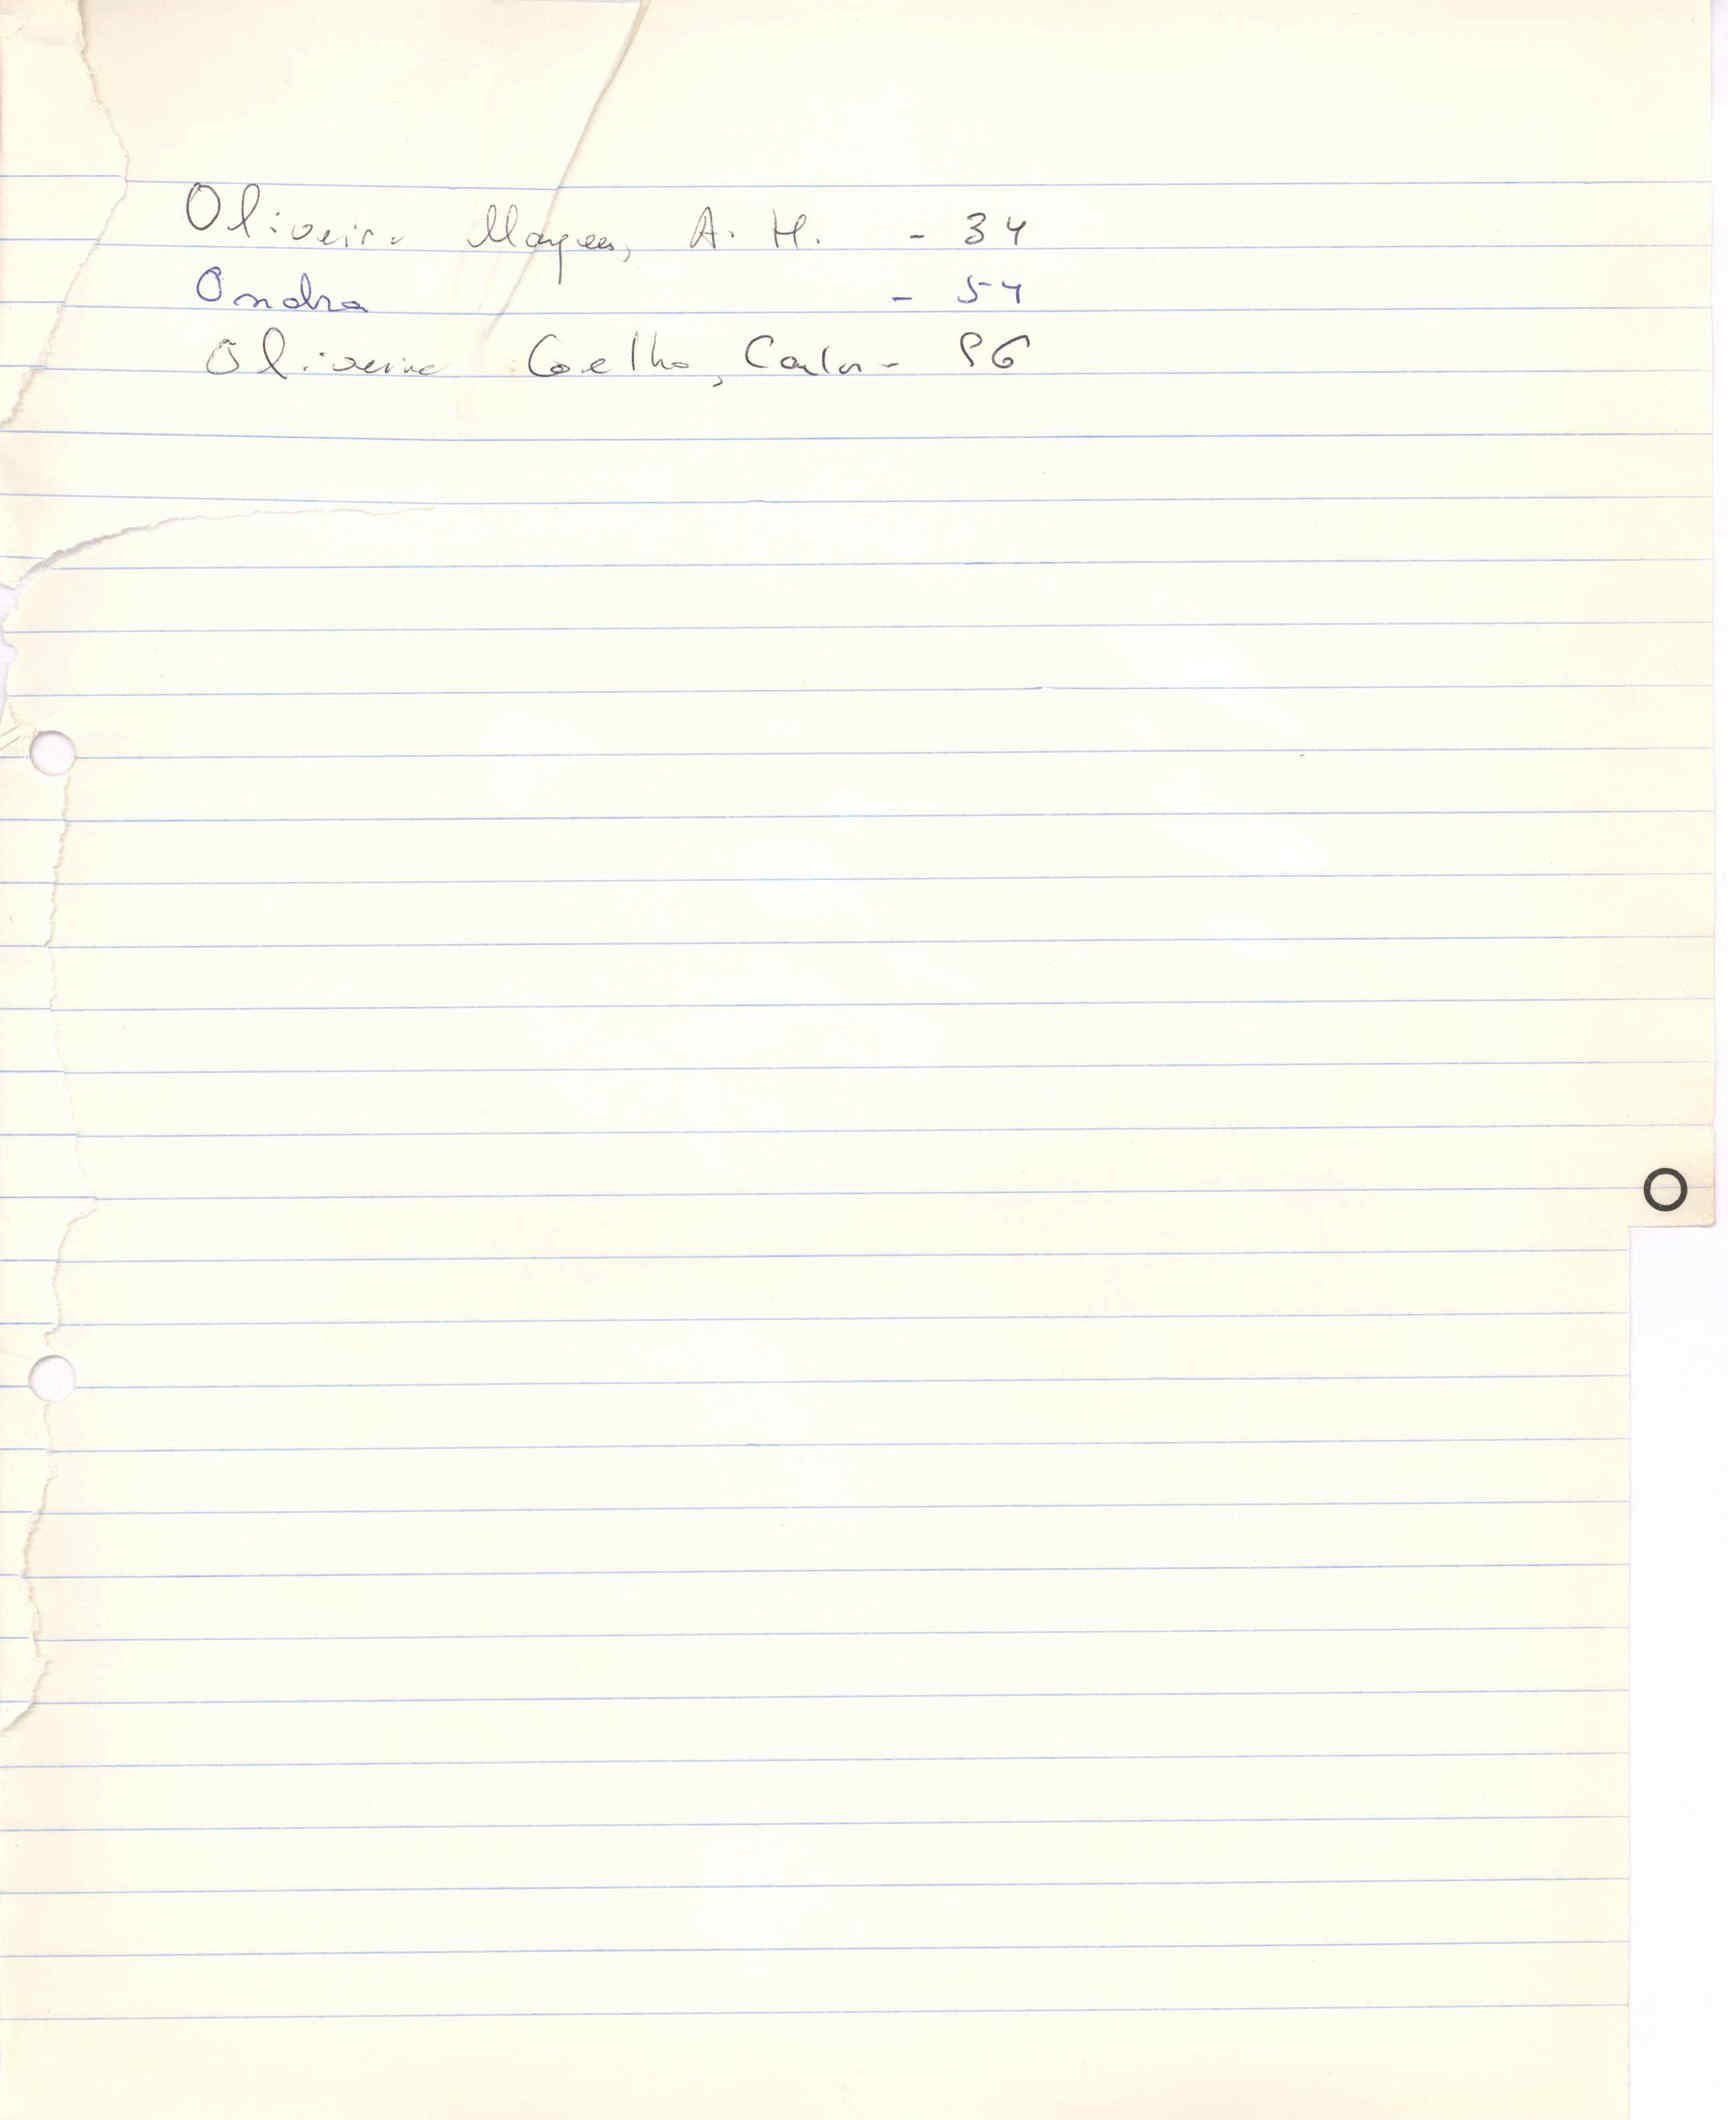 Oliveira Marques, A. H. - 34
Ondra - 54
Oliveira Coelho, Carlos - 86
O